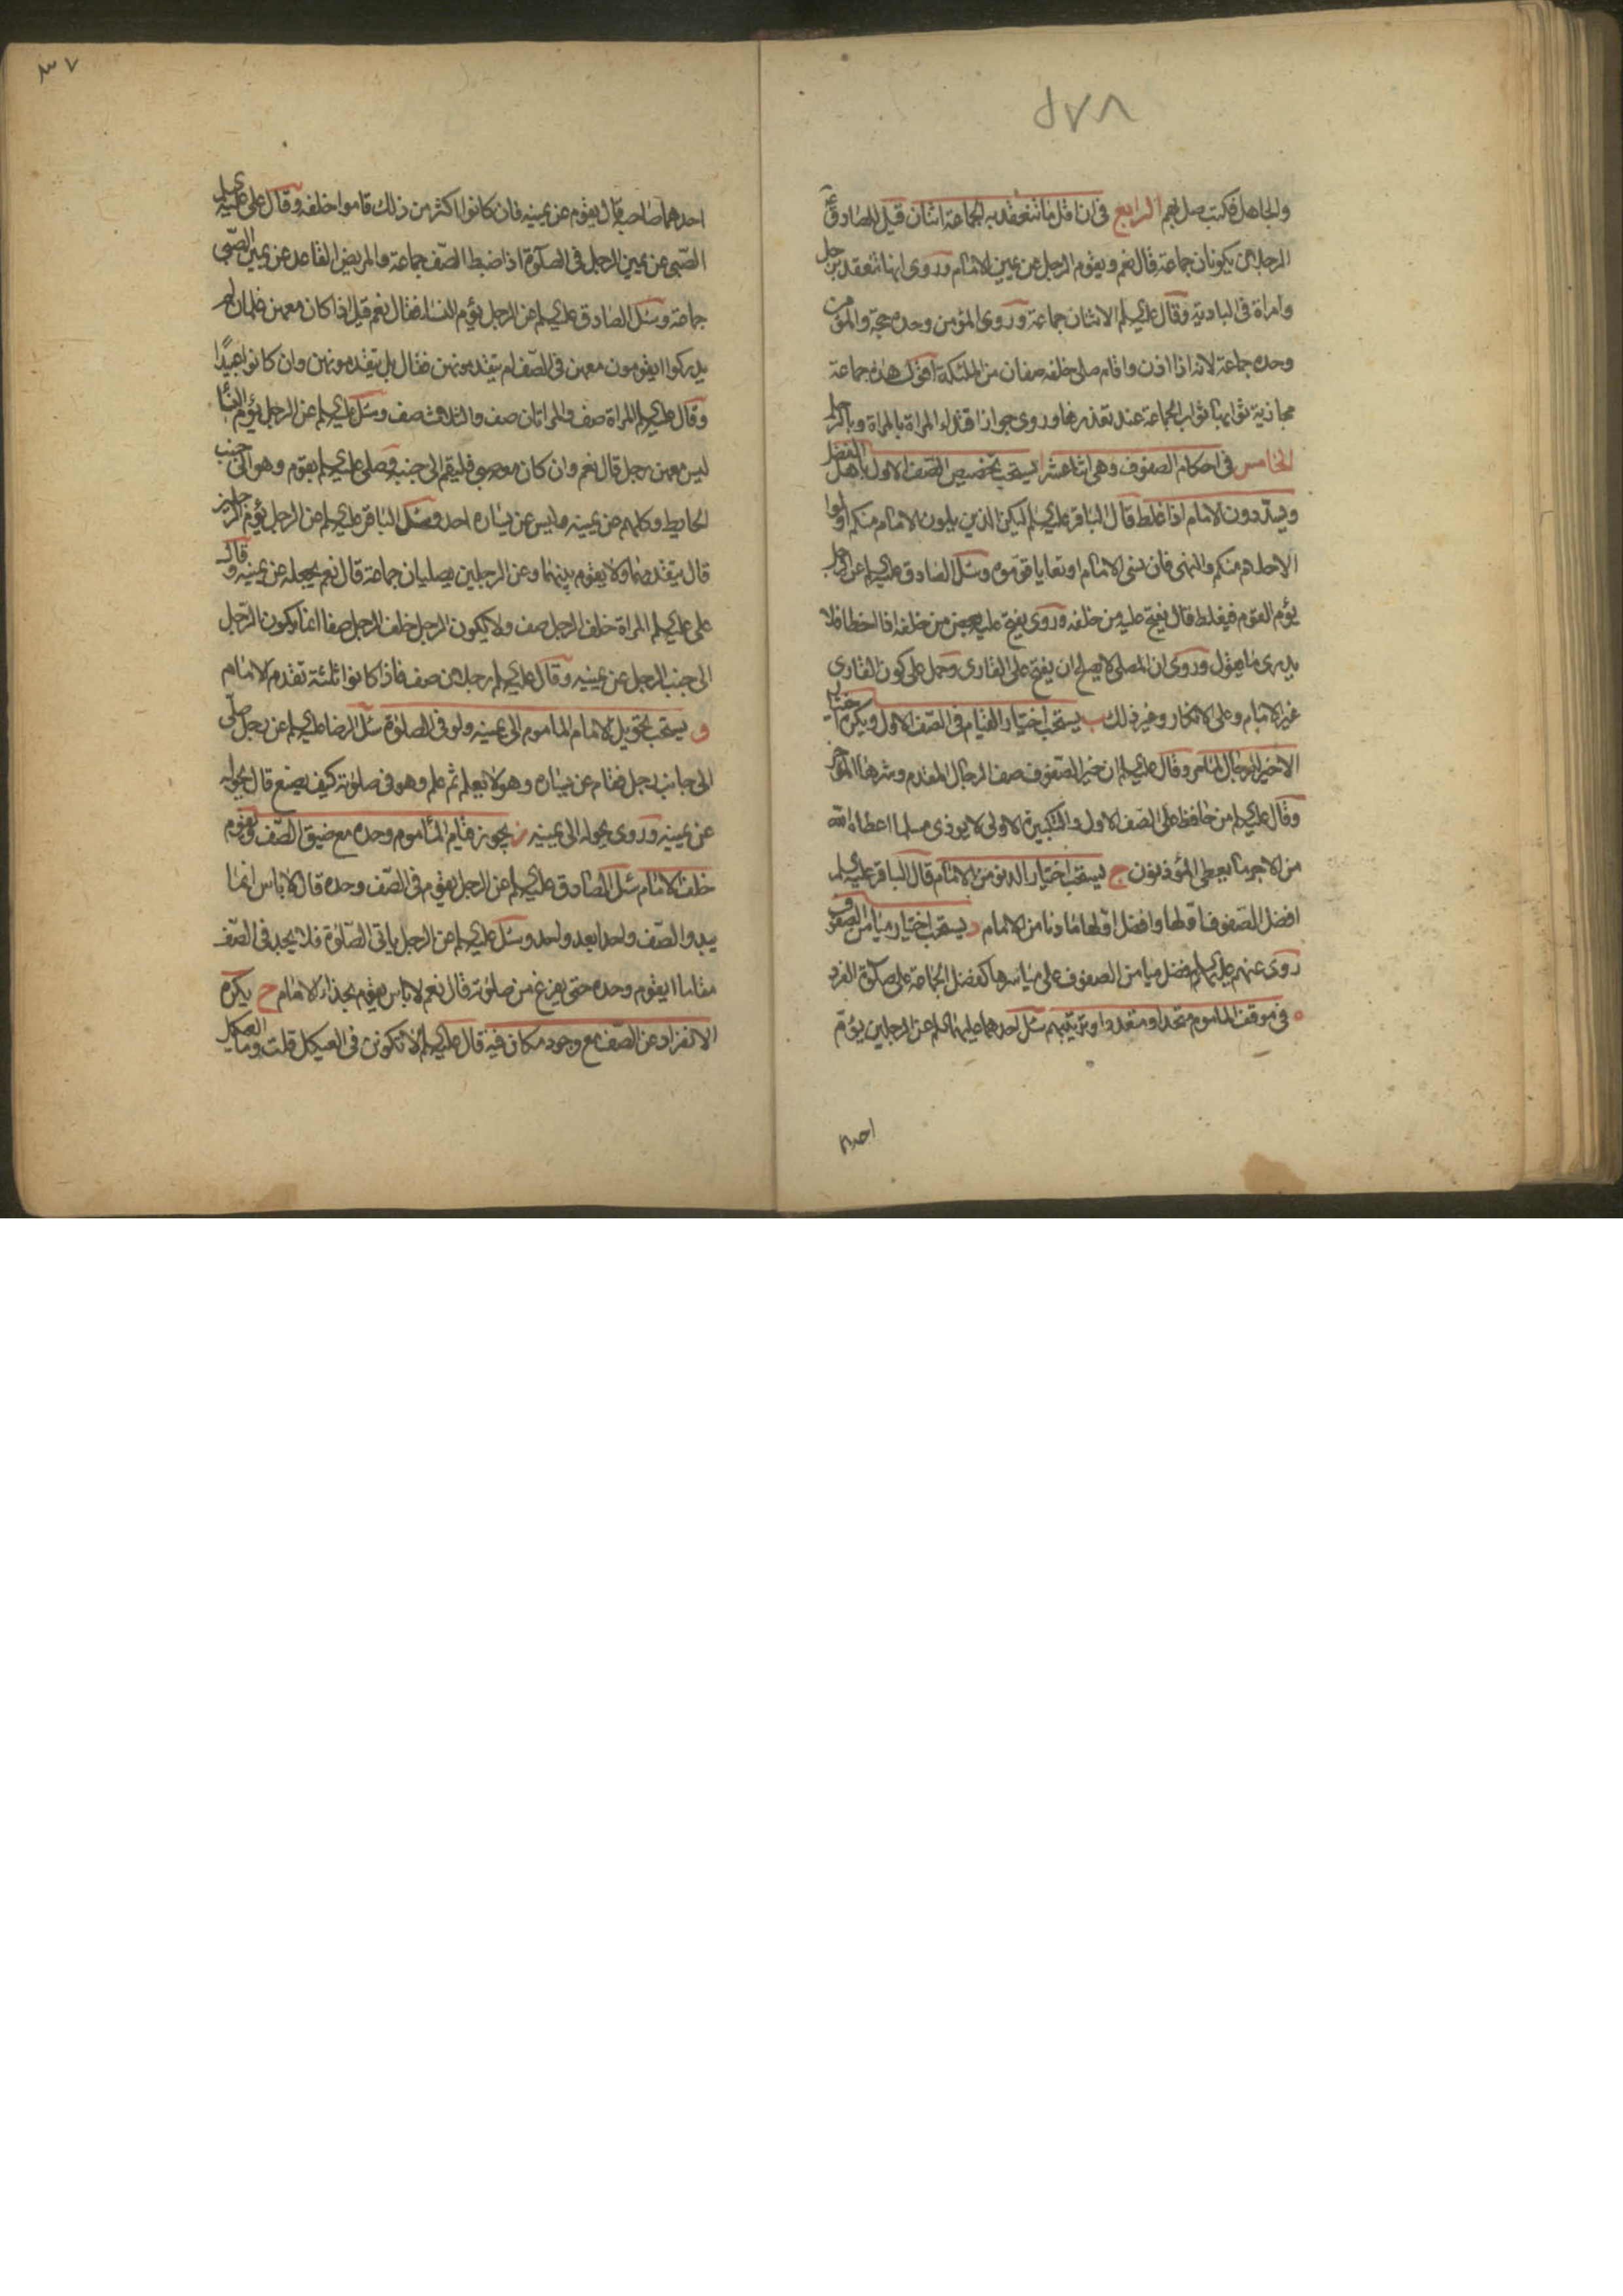 ٥٧٨
والجاهل فكتب صل بهم الرابع في ان اقل ما تنعقد به الجماعة اثنان قيل للصادق ع
الرجلان يكونان جماعة قال نعم ويقوم الرجل عن يمين الامام وروى انها تنعقد برجل
وامراة في البادية وقال عليه السلم الاثنان جماعة وروى المؤمن وحده حجة والمؤمن
وحده جماعة لانه اذا اذن واقام صلى خلفه صفان من الملئكة اقول هذه جماعة
مجازية ثوابها ثواب الجماعة عند تعذرها وروى جواز اقتداء المراة بالمراة وبالرجل
الخامس في احكام الصفوف وهي اثنا عشر ا يستحب تخصيص الصف الاول باهل الفضل
ويسددون الامام اذا غلط قال الباقر عليه السلم ليكن الذين يلون الامام منكم اولوا
الاحلام منكم والنهى فان نسى الامام او تعايا قوموه وسئل الصادق عليه السلم عن الرجل
يؤم القوم فيغلط قال يفتح عليه من خلفه وروى يفتح عليه بعض من خلفه اذا اخطا فلا
يدرى ما يقول وروى ان المصلى لا يصلح ان يفتح على القارى وحمل على كون القارى
غير الامام وعلى الانكار وغير ذلك ب يستحب اختيار القيام في الصف الاول ويكره اختيار
الاخير للرجال وقال عليه السلم ان خير الصفوف صف الرجال المقدم وشرها المؤخر
وقال عليه السلم من حافظ على الصف الاول والتكبيرة الاولى لا يوذى مسلما اعطاه الله
من الاجر ما يعطى المؤذنون ج يستحب اختيار الدنو من الامام قال الباقر عليه السلم
افضل الصفوف اولها وافضل اولها ما دنا من الامام د يستحب اختيار ميامن الصفوف
روى عنهم عليهم السلم فضل ميامن الصفوف على مياسرها كفضل الجماعة على صلوة الفرد
ه في موقف الماموم متحدا ومتعددا وترتيبهم سئل احدهما عليهما السلم عن الرجلين يؤم
احدهما
٣٧
احدهما صاحبه قال يقوم عن يمينه فان كانوا اكثر من ذلك قاموا خلفه وقال على عليه السلم
الصبى عن يمين الرجل في الصلوة اذا ضبط الصف جماعة والمريض القاعد عن يمين الصبى
جماعة وسئل الصادق عليه السلم عن الرجل يؤم النساء فقال نعم قيل اذا كان معهن غلمان لم
يدركوا ايقومون معهن في الصف ام يتقدمونهن فقال بل يتقدمونهن وان كانوا عبيدا
وقال عليه السلم المراة صف والمراتان صف والثلاث صف وسئل عليه السلم عن الرجل يؤم النسا
ليس معهن رجل قال نعم وان كان معه صبى فليقم الى جنبه وصلى عليه السلم بقوم وهو الى جنب
الحايط وكلهم عن يمينه وليس عن يساره احد وسئل الباقر عليه السلم عن الرجل يؤم الرجلين
قال يتقدمهما ولا يقوم بينهما وعن الرجلين يصليان جماعة قال نعم يجعله عن يمينه وقال
على عليه السلم المراة خلف الرجل صف ولا يكون الرجل خلف الرجل صفا انما يكون الرجل
الى جنب الرجل عن يمينه وقال عليه السلم رجلان صف فاذا كانوا ثلثة تقدم الامام
و يستحب تحويل الامام الماموم الى يمينه ولو في الصلوة سئل الرضا عليه السلم عن رجل صلى
الى جانب رجل فقام عن يساره وهو لا يعلم ثم علم وهو في صلوته كيف يصنع قال يحوله
عن يمينه وروى يحوله الى يمينه ز يجوز قيام الماموم وحده مع ضيق الصف ويقوم
خلف الامام سئل الصادق عليه السلم عن الرجل يقوم في الصف وحده قال لا باس انما
يبدو الصف واحدا بعد واحد وسئل عليه السلم عن الرجل ياتى الصلوة فلا يجد في الصف
مقاما ايقوم وحده حتى يفرغ من صلوته قال نعم لا باس يقوم بحذاء الامام ح يكره
الانفراد عن الصف مع وجود مكان فيه قال عليه السلم لا تكونن في العيكل قلت وما العيكل